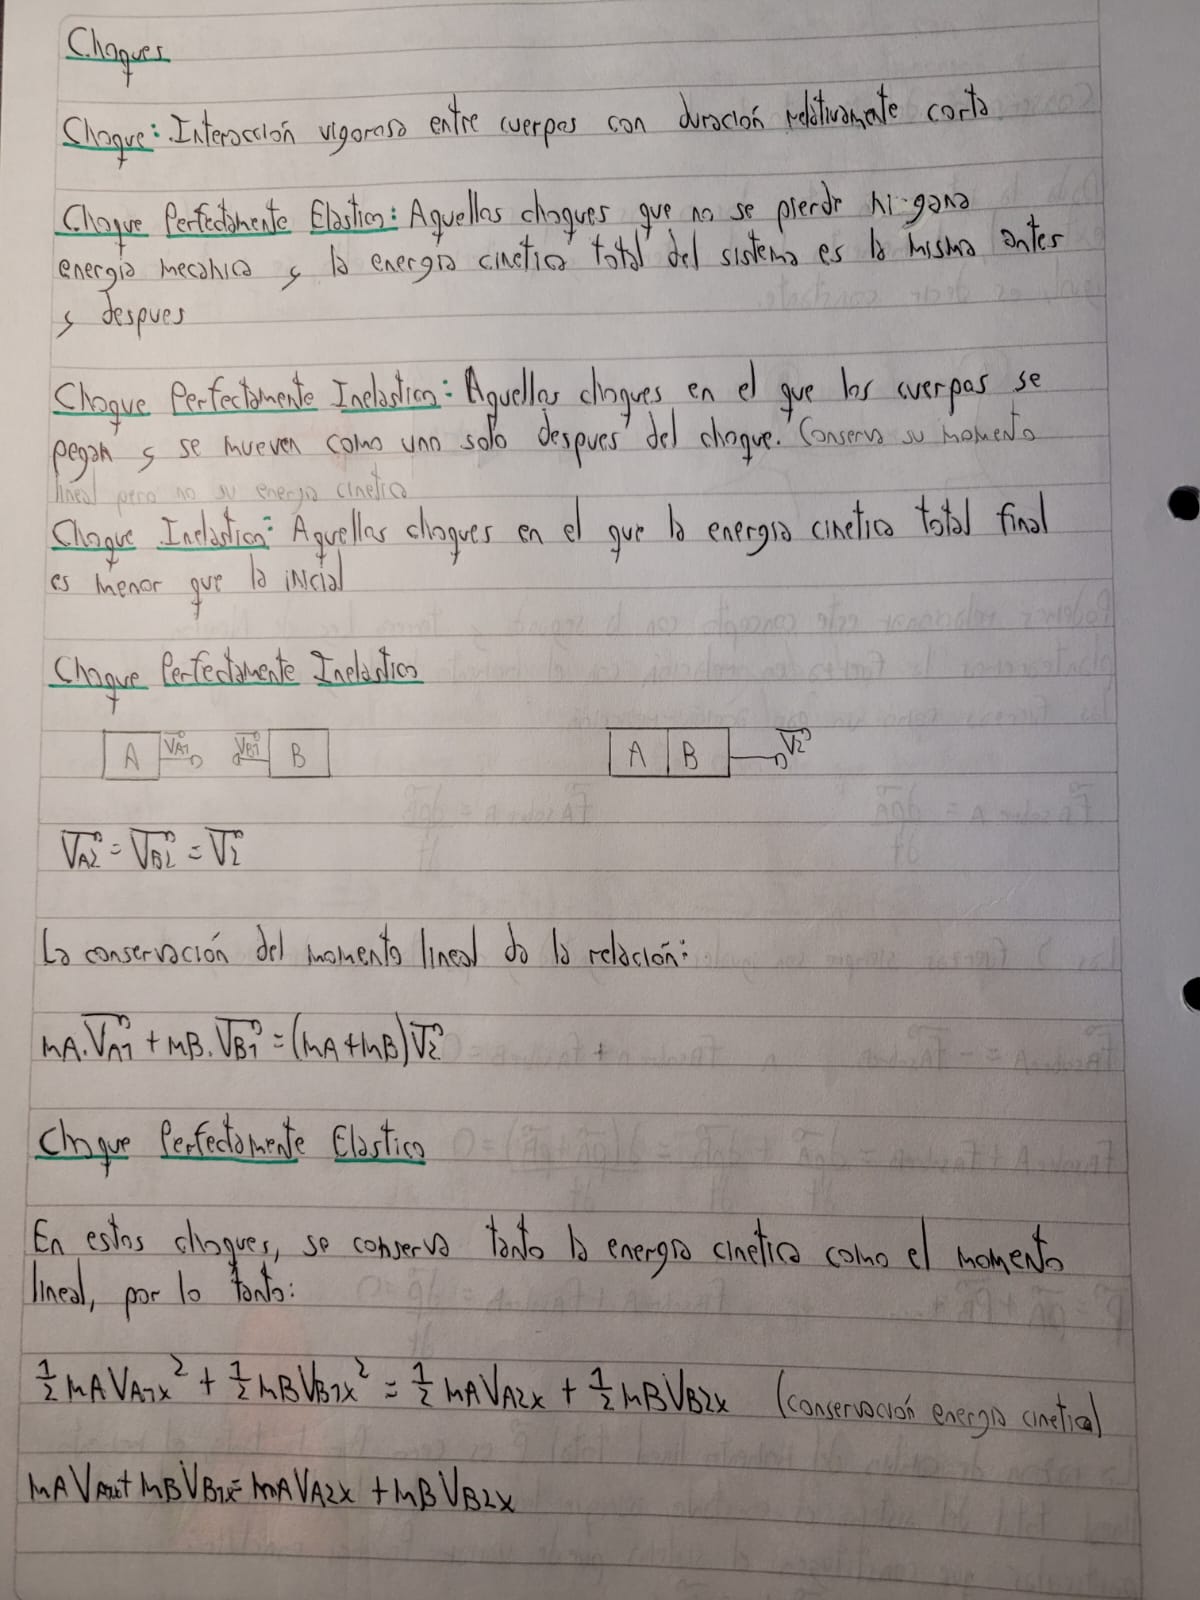 Choques
Choque: Interacción vigorosa entre cuerpos con duración relativamente corta
Choque Perfectamente Elastico: Aquellos choques que no se pierde ni gana
energia mecanica y la energia cinetica total del sistema es la misma antes
y despues
Choque Perfectamente Inelastico: Aquellos choques en el que los cuerpos se
pegan y se mueven como uno solo despues del choque. Conserva su momento
lineal pero no su energia cinetica
Choque Inelastico: Aquellos choques en el que la energia cinetica total final
es menor que la inicial
Choque Perfectamente Inelastico
A VA1 VB1 B A B V2
VA2 = VB2 = V2
La conservación del momento lineal da la relación:
mA.VA1 + mB.VB1 = (mA + mB)V2
Choque Perfectamente Elastico
En estos choques, se conserva tanto la energia cinetica como el momento
lineal, por lo tanto:
1/2 mAVA1x² + 1/2 mBVB1x² = 1/2 mAVA2x + 1/2 mBVB2x (conservación energia cinetica)
mAVA1x + mBVB1x = mAVA2x + mBVB2x